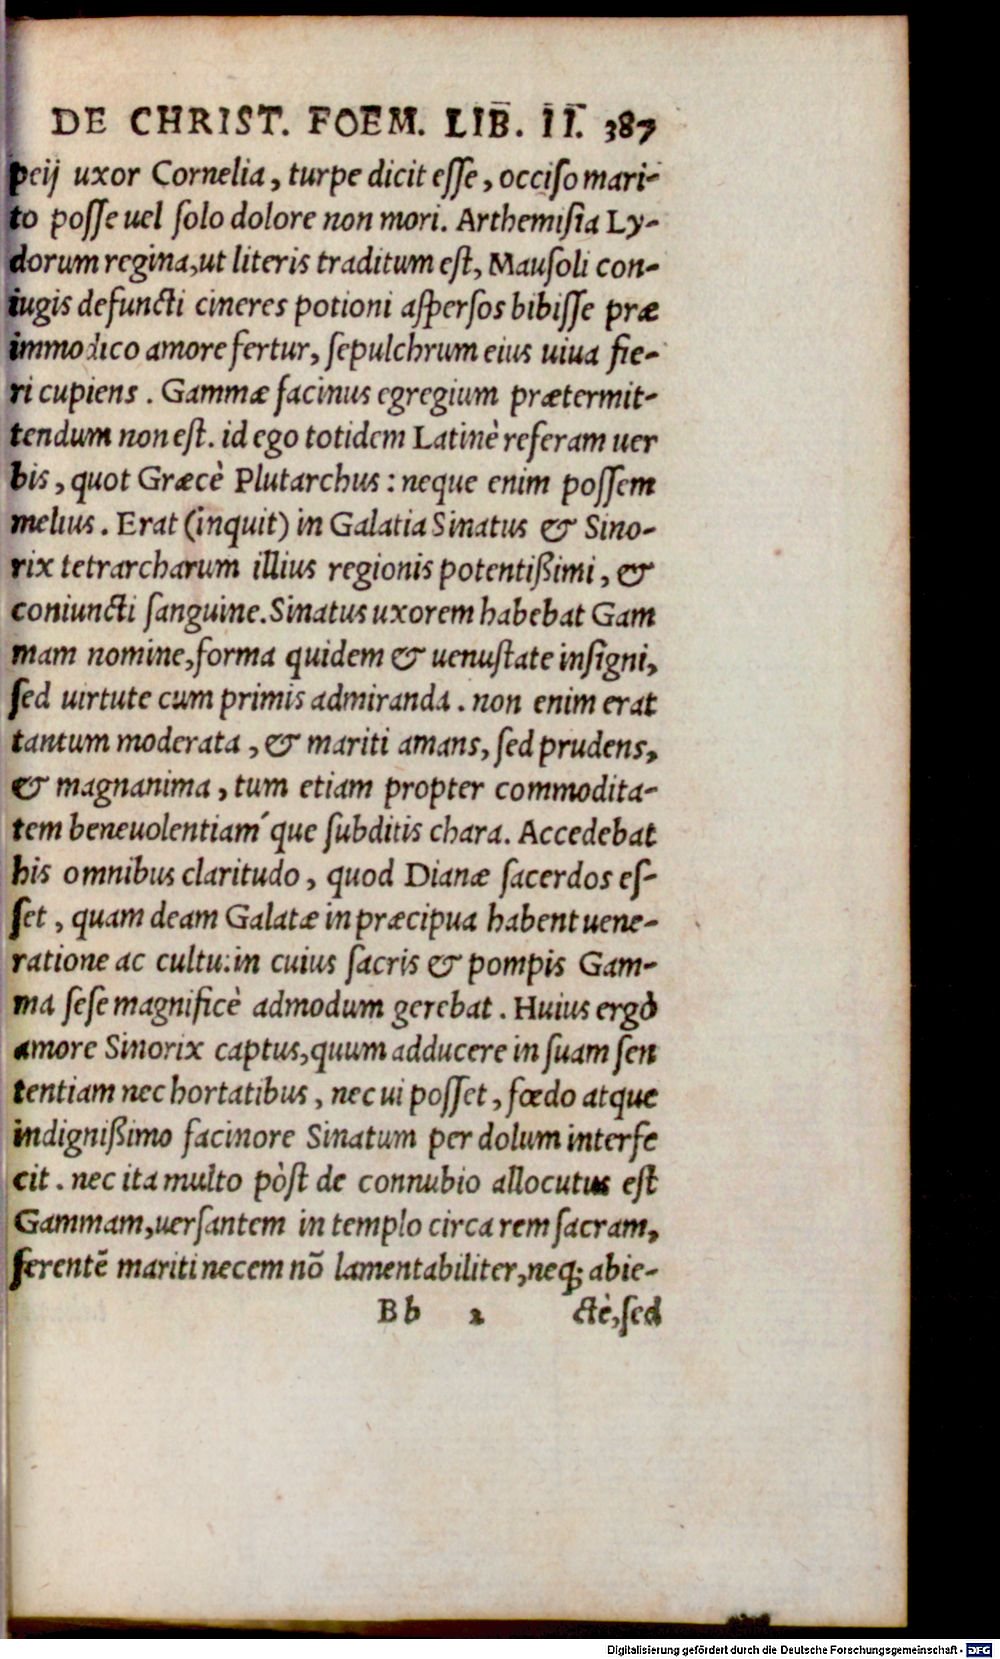 DE CHRIST. FOEM. LIB. II. 387
peij uxor Cornelia, turpe dicit eſſe, occiſo mari-
to poſſe uel ſolo dolore non mori. Arthemiſia Ly-
dorum regina, ut literis traditum eſt, Mauſoli con-
iugis defuncti cineres potioni aſperſos bibiſſe præ
immodico amore fertur, ſepulchrum eius uiua fie-
ri cupiens. Gammæ facinus egregium prætermit-
tendum non eſt. id ego totidem Latinè referam uer
bis, quot Græcè Plutarchus: neque enim poſſem
melius. Erat (inquit) in Galatia Sinatus & Sino-
rix tetrarcharum illius regionis potentißimi, &
coniuncti ſanguine. Sinatus uxorem habebat Gam
mam nomine, forma quidem & uenuſtate inſigni,
ſed uirtute cum primis admiranda. non enim erat
tantum moderata, & mariti amans, ſed prudens,
& magnanima, tum etiam propter commodita-
tem beneuolentiam´que ſubditis chara. Accedebat
his omnibus claritudo, quod Dianæ ſacerdos eſ-
ſet, quam deam Galatæ in præcipua habent uene-
ratione ac cultu: in cuius ſacris & pompis Gam-
ma ſeſe magnificè admodum gerebat. Huius ergò
amore Sinorix captus, quum adducere in ſuam ſen
tentiam nec hortatibus, nec ui poſſet, fœdo atque
indignißimo facinore Sinatum per dolum interfe
cit. nec ita multo pòſt de connubio allocutus eſt
Gammam, uerſantem in templo circa rem ſacram,
ferentē mariti necem nō lamentabiliter, neq; abie-
Bb 2 ctè, ſed
Digitalisierung gefördert durch die Deutsche Forschungsgemeinschaft - DFG